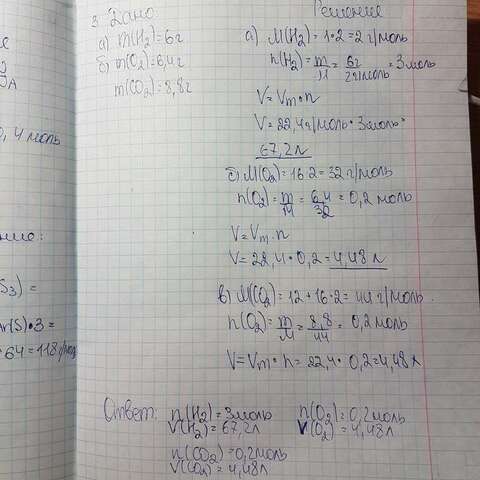 3 Дано
а) m(H₂)=6г
б) m(O₂)=6,4г
m(CO₂)=8,8г
Решение
а) M(H₂)=1·2=2 г/моль
n(H₂)=m/M=6г/2г/моль=3моль
V=Vm·n
V=22,4л/моль·3моль=
67,2л
б) M(O₂)=16·2=32 г/моль
n(O₂)=m/M=6,4/32=0,2 моль
V=Vm·n
V=22,4·0,2=4,48л
в) M(CO₂)=12+16·2=44 г/моль.
n(O₂)=m/M=8,8/44=0,2 моль
V=Vm·n=22,4·0,2=4,48л
Ответ: n(H₂)=3моль n(O₂)=0,2моль
V(H₂)=67,2л V(O₂)=4,48л
n(CO₂)=0,2моль
V(CO₂)=4,48л
0,4 моль
S₃)=
Ar(S)·3=
64=118 г/моль